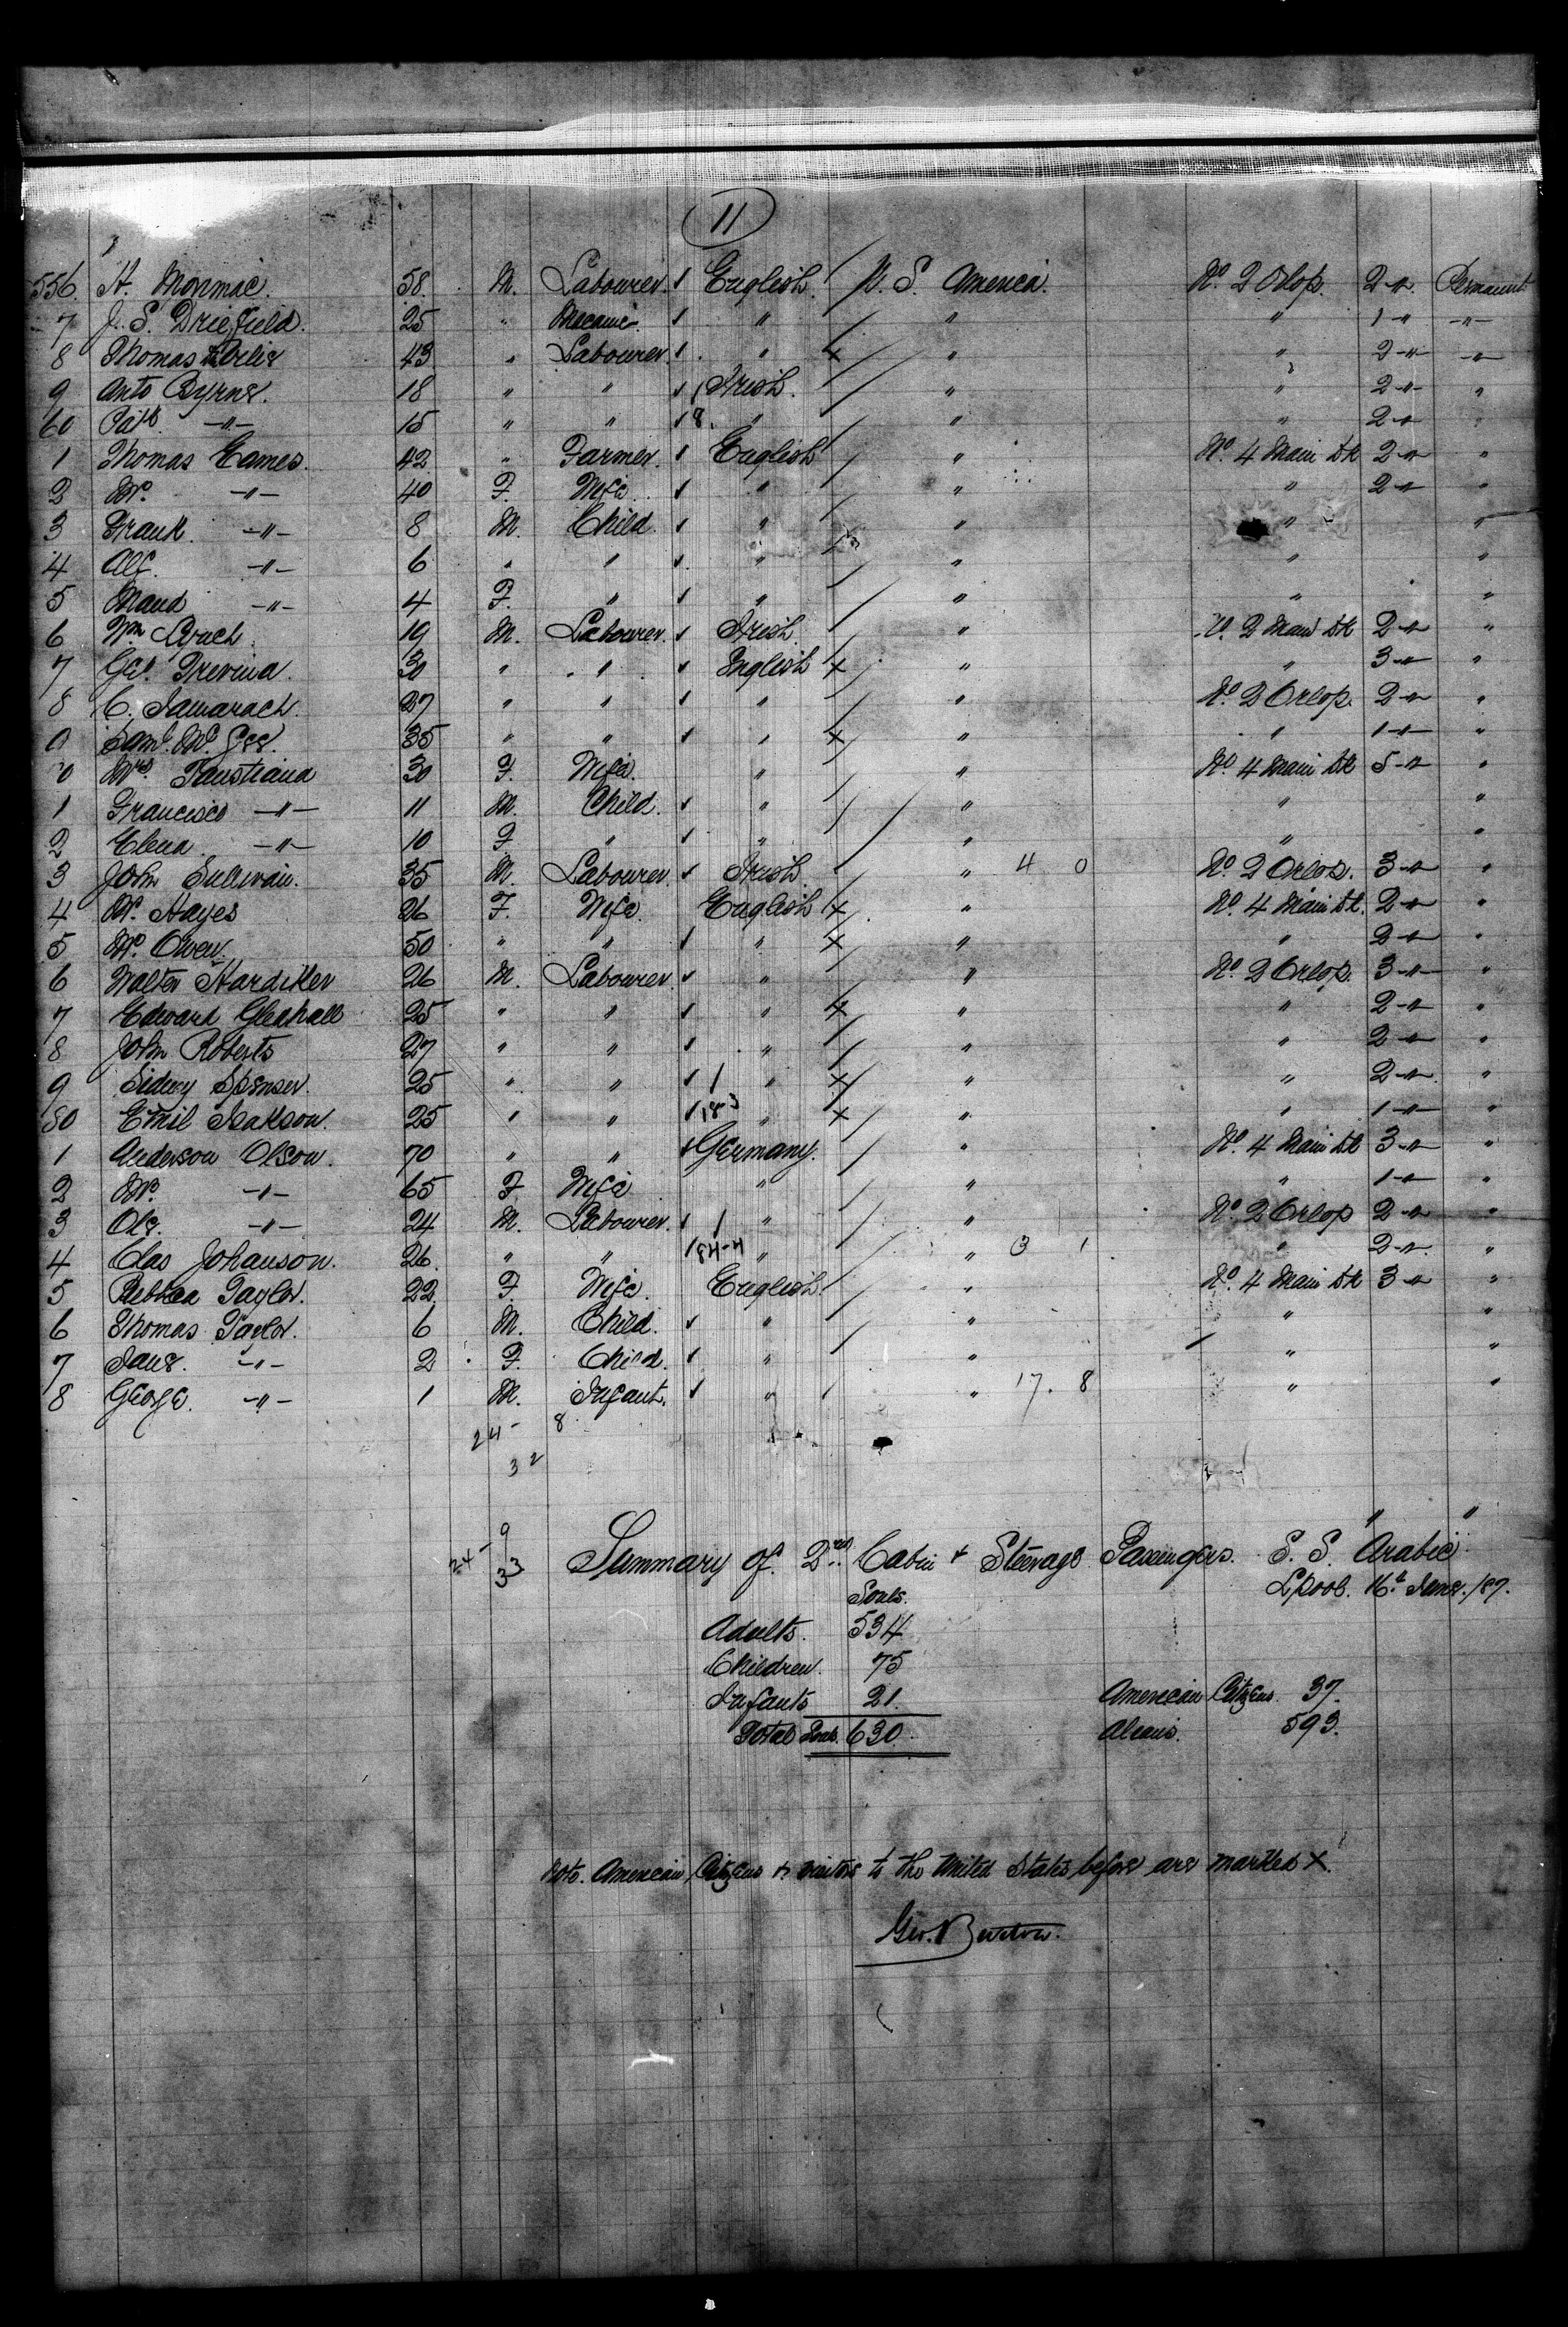 11
556. H. Mormac. 58. M. Labourer. English. U. S. America. No. 2 Orlop. 2 -"- Permanent
7 J. S. Driefield. 25 " Mecanic. " " " 1 -"- -"-
8 Thomas 43 " Labourer. " " " 2 -"- -"-
9 Anto Byrne. 18 " " Irish. " " 2 -"- "
60 Patk. -"- 15 " " 8. " " " 2 -"- "
1 Thomas Eames. 42 " Farmer. English " No. 4 Main Dk 2 -"- "
2 Mrs. -"- 40 F. Wife. " " " 2 -"- "
3 Frank. -"- 8 M. Child. " " " "
4 Alf. -"- 6 " " " " " "
5 Maud -"- 4 F. " " " " "
6 Wm Leach 19 M. Labourer. Irish. " No. 2 Main Dk 2 -"- "
7 Geo. Trevina. 30 " " English X " " 3 -"- "
8 C. 27 " " " " No. 2 Orlop. 2 -"- "
9 Saml. McGee. 35 " " " X " " 1 -"- "
70 Mrs Faustiana 30 F. Wife. " " No. 4 Main Dk 5 -"- "
1 Francisco -"- 11 M. Child. " " " "
2 Elena. -"- 10 F " " " " "
3 John Sullivan. 35 M. Labourer. Irish. " 4 0 No. 2 Orlop. 3 -"- "
4 Mrs. Hayes 26 F. Wife. English X " No. 4 Main Dk. 2 -"- "
5 Mrs. Owen. 50 " " " X " " 2 -"- "
6 Walter Hardiker 26 M. Labourer. " " No. 2 Orlop. 3 -"- "
7 Edward Gleahall 25 " " " X " " 2 -"- "
8 John Roberts 27 " " " " " 2 -"- "
9 Sidney Spenser. 25 " " " X " " 2 -"- "
80 Emil Isakson. 25 " " 18 3 " X " " 1 -"- "
1 Anderson Olson. 70 " " Germany. " No. 4 Main Dk 3 -"- "
2 Mrs. -"- 65 F Wife " " " 1 -"- "
3 Ole. -"- 24 M. Labourer. " " No. 2 Orlop 2 -"- "
4 Clas Johanson. 26. " " 84-4 " " 3 1 " 2 -"- "
5 Rebkea Taylor. 22 F. Wife. English. " No. 4 Main Dk 3 -"- "
6 Thomas Taylor. 6 M. Child. " " " "
7 Jane. -"- 2 F. Child. " " " "
8 George. -"- 1 M. Infant. " " 17. 8 " "
24 - 8
32
24 - 9
33
Summary of 2nd Cabin & Steerage Passengers. S. S. "Arabic"
Souls. Lpool. 16th June./87.
Adults. 534
Children. 75
Infants 21. American Citizens 37.
Total Souls. 630. Aleans. 593.
Note. American Citizens & visitors to the United States before are marked X.
Geo. Burton.